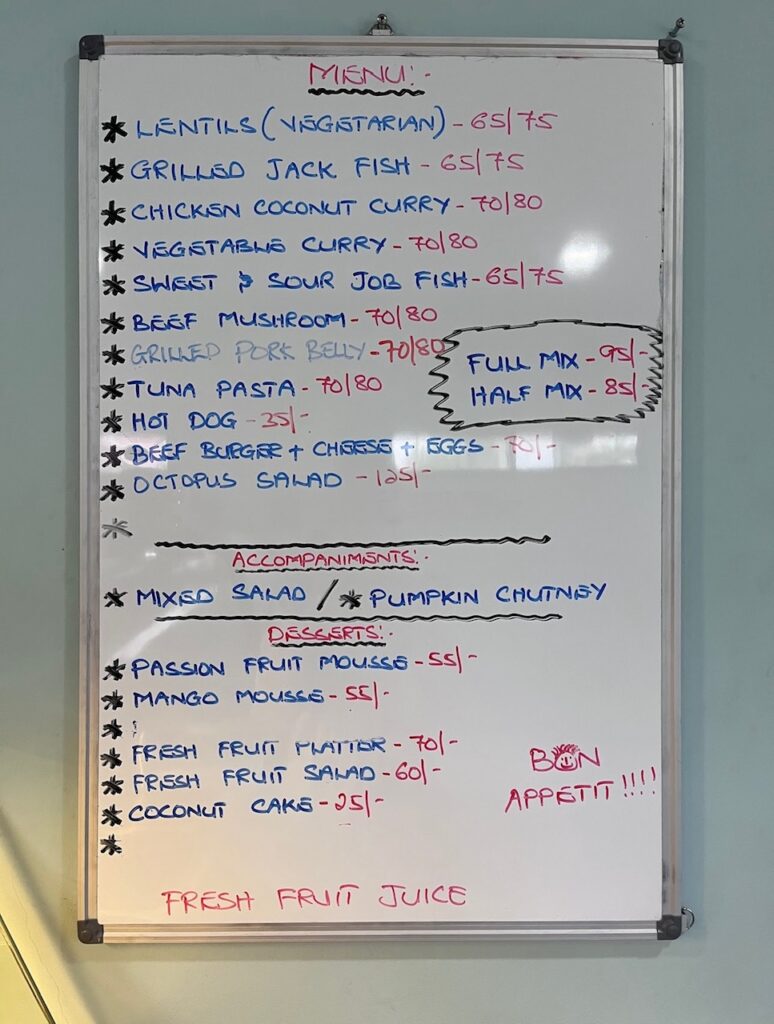 MENU:-
* LENTILS (VEGETARIAN) - 65/75
* GRILLED JACK FISH - 65/75
* CHICKEN COCONUT CURRY - 70/80
* VEGETABLE CURRY - 70/80
* SWEET & SOUR JOB FISH - 65/75
* BEEF MUSHROOM - 70/80
* GRILLED PORK BELLY - 70/80
* TUNA PASTA - 70/80
* HOT DOG - 35/-
* BEEF BURGER + CHEESE + EGGS - 70/-
* OCTOPUS SALAD - 125/-
*
FULL MIX - 95/-
HALF MIX - 85/-
ACCOMPANIMENTS:-
* MIXED SALAD / * PUMPKIN CHUTNEY
DESSERTS:-
* PASSION FRUIT MOUSSE - 55/-
* MANGO MOUSSE - 55/-
*
* FRESH FRUIT PLATTER - 70/-
* FRESH FRUIT SALAD - 60/-
* COCONUT CAKE - 25/-
*
BON
APPETIT!!!!
FRESH FRUIT JUICE